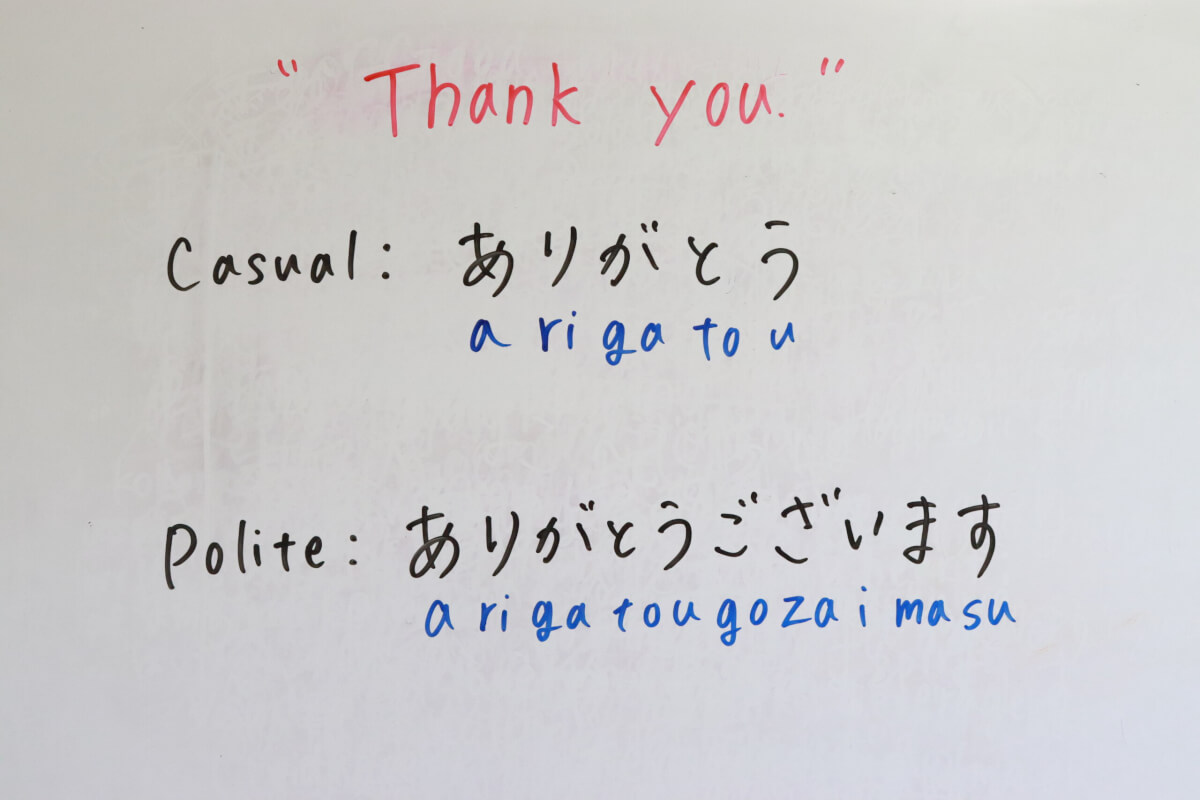 " Thank you. "
Casual: ありがとう
a ri ga to u
Polite: ありがとうございます
a ri ga to u go za i ma su